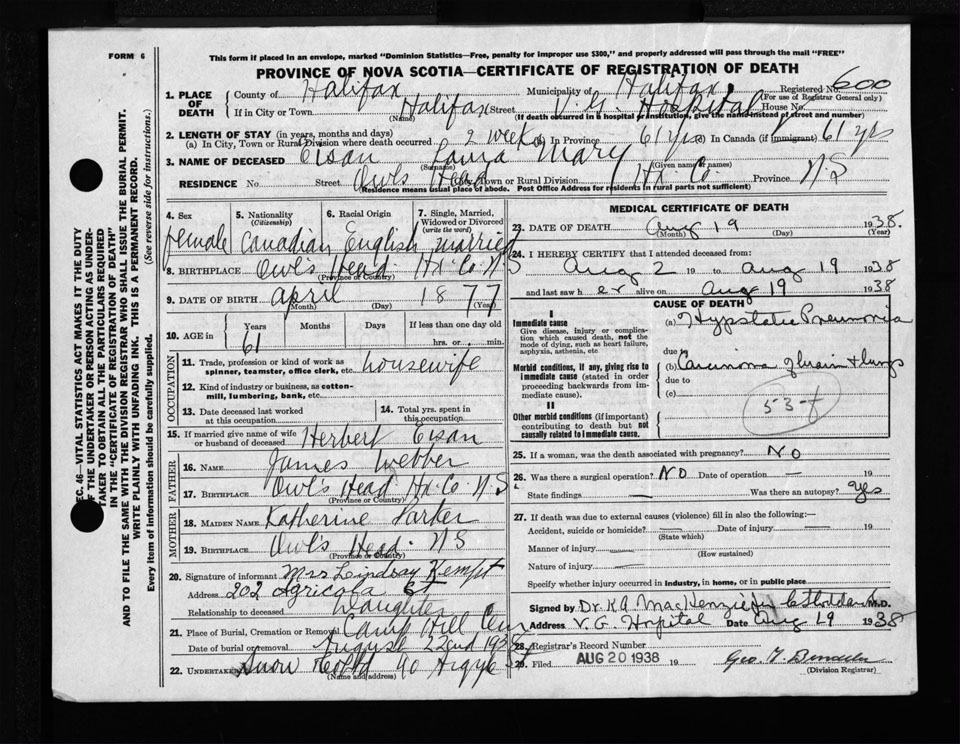 FORM 6
This form if placed in an envelope, marked "Dominion Statistics—Free, penalty for improper use $300," and properly addressed will pass through the mail "FREE"
PROVINCE OF NOVA SCOTIA—CERTIFICATE OF REGISTRATION OF DEATH
Registered No. 600
(For use of Registrar General only)
1. PLACE OF DEATH County of Halifax Municipality of Halifax
If in City or Town Halifax Street V. G. Hospital House No.
(Name) (If death occurred in a hospital or institution, give the name instead of street and number)
2. LENGTH OF STAY (in years, months and days)
(a) In City, Town or Rural Division where death occurred 2 weeks (b) In Province 61 yrs (c) In Canada (if immigrant) 61 yrs
3. NAME OF DECEASED Eisan Laura Mary
(Surname) (Given name or names)
RESIDENCE No. Street Owls Head City, Town or Rural Division Hx. Co. Province N S
(Residence means usual place of abode. Post Office Address for residents in rural parts not sufficient)
4. Sex female
5. Nationality (Citizenship) Canadian
6. Racial Origin English
7. Single, Married, Widowed or Divorced (write the word) married
8. BIRTHPLACE Owl's Head Hx. Co. N S
(Province or Country)
9. DATE OF BIRTH April 1877
(Month) (Day) (Year)
10. AGE in Years Months Days If less than one day old
61 hrs. or min.
OCCUPATION
11. Trade, profession or kind of work as spinner, teamster, office clerk, etc. housewife
12. Kind of industry or business, as cotton-mill, lumbering, bank, etc.
13. Date deceased last worked at this occupation
14. Total yrs. spent in this occupation
15. If married give name of wife or husband of deceased Herbert Eisan
FATHER
16. NAME James Webber
17. BIRTHPLACE Owl's Head Hx. Co. N S
(Province or Country)
MOTHER
18. MAIDEN NAME Katherine Parker
19. BIRTHPLACE Owls Head N S
(Province or Country)
20. Signature of informant Mrs Lindsay Kempt
Address 202 Agricola St
Relationship to deceased Daughter
21. Place of Burial, Cremation or Removal Camp Hill Cem
Date of burial or removal August 22nd 1938
22. Undertaker Snow Co Ltd 90 Argyle St
(Name and address)
MEDICAL CERTIFICATE OF DEATH
23. DATE OF DEATH Aug 19 1938.
(Month) (Day) (Year)
24. I HEREBY CERTIFY that I attended deceased from:
Aug 2 19 to Aug 19 1938
and last saw her alive on Aug 19 1938
CAUSE OF DEATH
I
Immediate cause
Give disease, injury or complication which caused death, not the mode of dying, such as heart failure, asphyxia, asthenia, etc
(a) Hypostatic Pneumonia
due to
Morbid conditions, if any, giving rise to immediate cause (stated in order proceeding backwards from immediate cause).
(b) Carcinoma of brain & lungs
due to
(c)
53-f
II
Other morbid conditions (if important) contributing to death but not causally related to immediate cause.
25. If a woman, was the death associated with pregnancy? No
26. Was there a surgical operation? No Date of operation — 19
State findings — Was there an autopsy? yes
27. If death was due to external causes (violence) fill in also the following:—
Accident, suicide or homicide? — Date of injury — 19
(State which)
Manner of injury —
(How sustained)
Nature of injury —
Specify whether injury occurred in industry, in home, or in public place
Signed by Dr. K A MacKenzie M.D.
Address V. G. Hospital Date Aug 19 1938
28. Registrar's Record Number
29. Filed AUG 20 1938 19
(Division Registrar)
SEC. 46—VITAL STATISTICS ACT MAKES IT THE DUTY
OF THE UNDERTAKER OR PERSON ACTING AS UNDER-
TAKER TO OBTAIN ALL THE PARTICULARS REQUIRED
IN THE "CERTIFICATE OF REGISTRATION OF DEATH"
AND TO FILE THE SAME WITH THE DIVISION REGISTRAR WHO SHALL ISSUE THE BURIAL PERMIT.
WRITE PLAINLY WITH UNFADING INK. THIS IS A PERMANENT RECORD.
Every item of information should be carefully supplied. (See reverse side for instructions.)